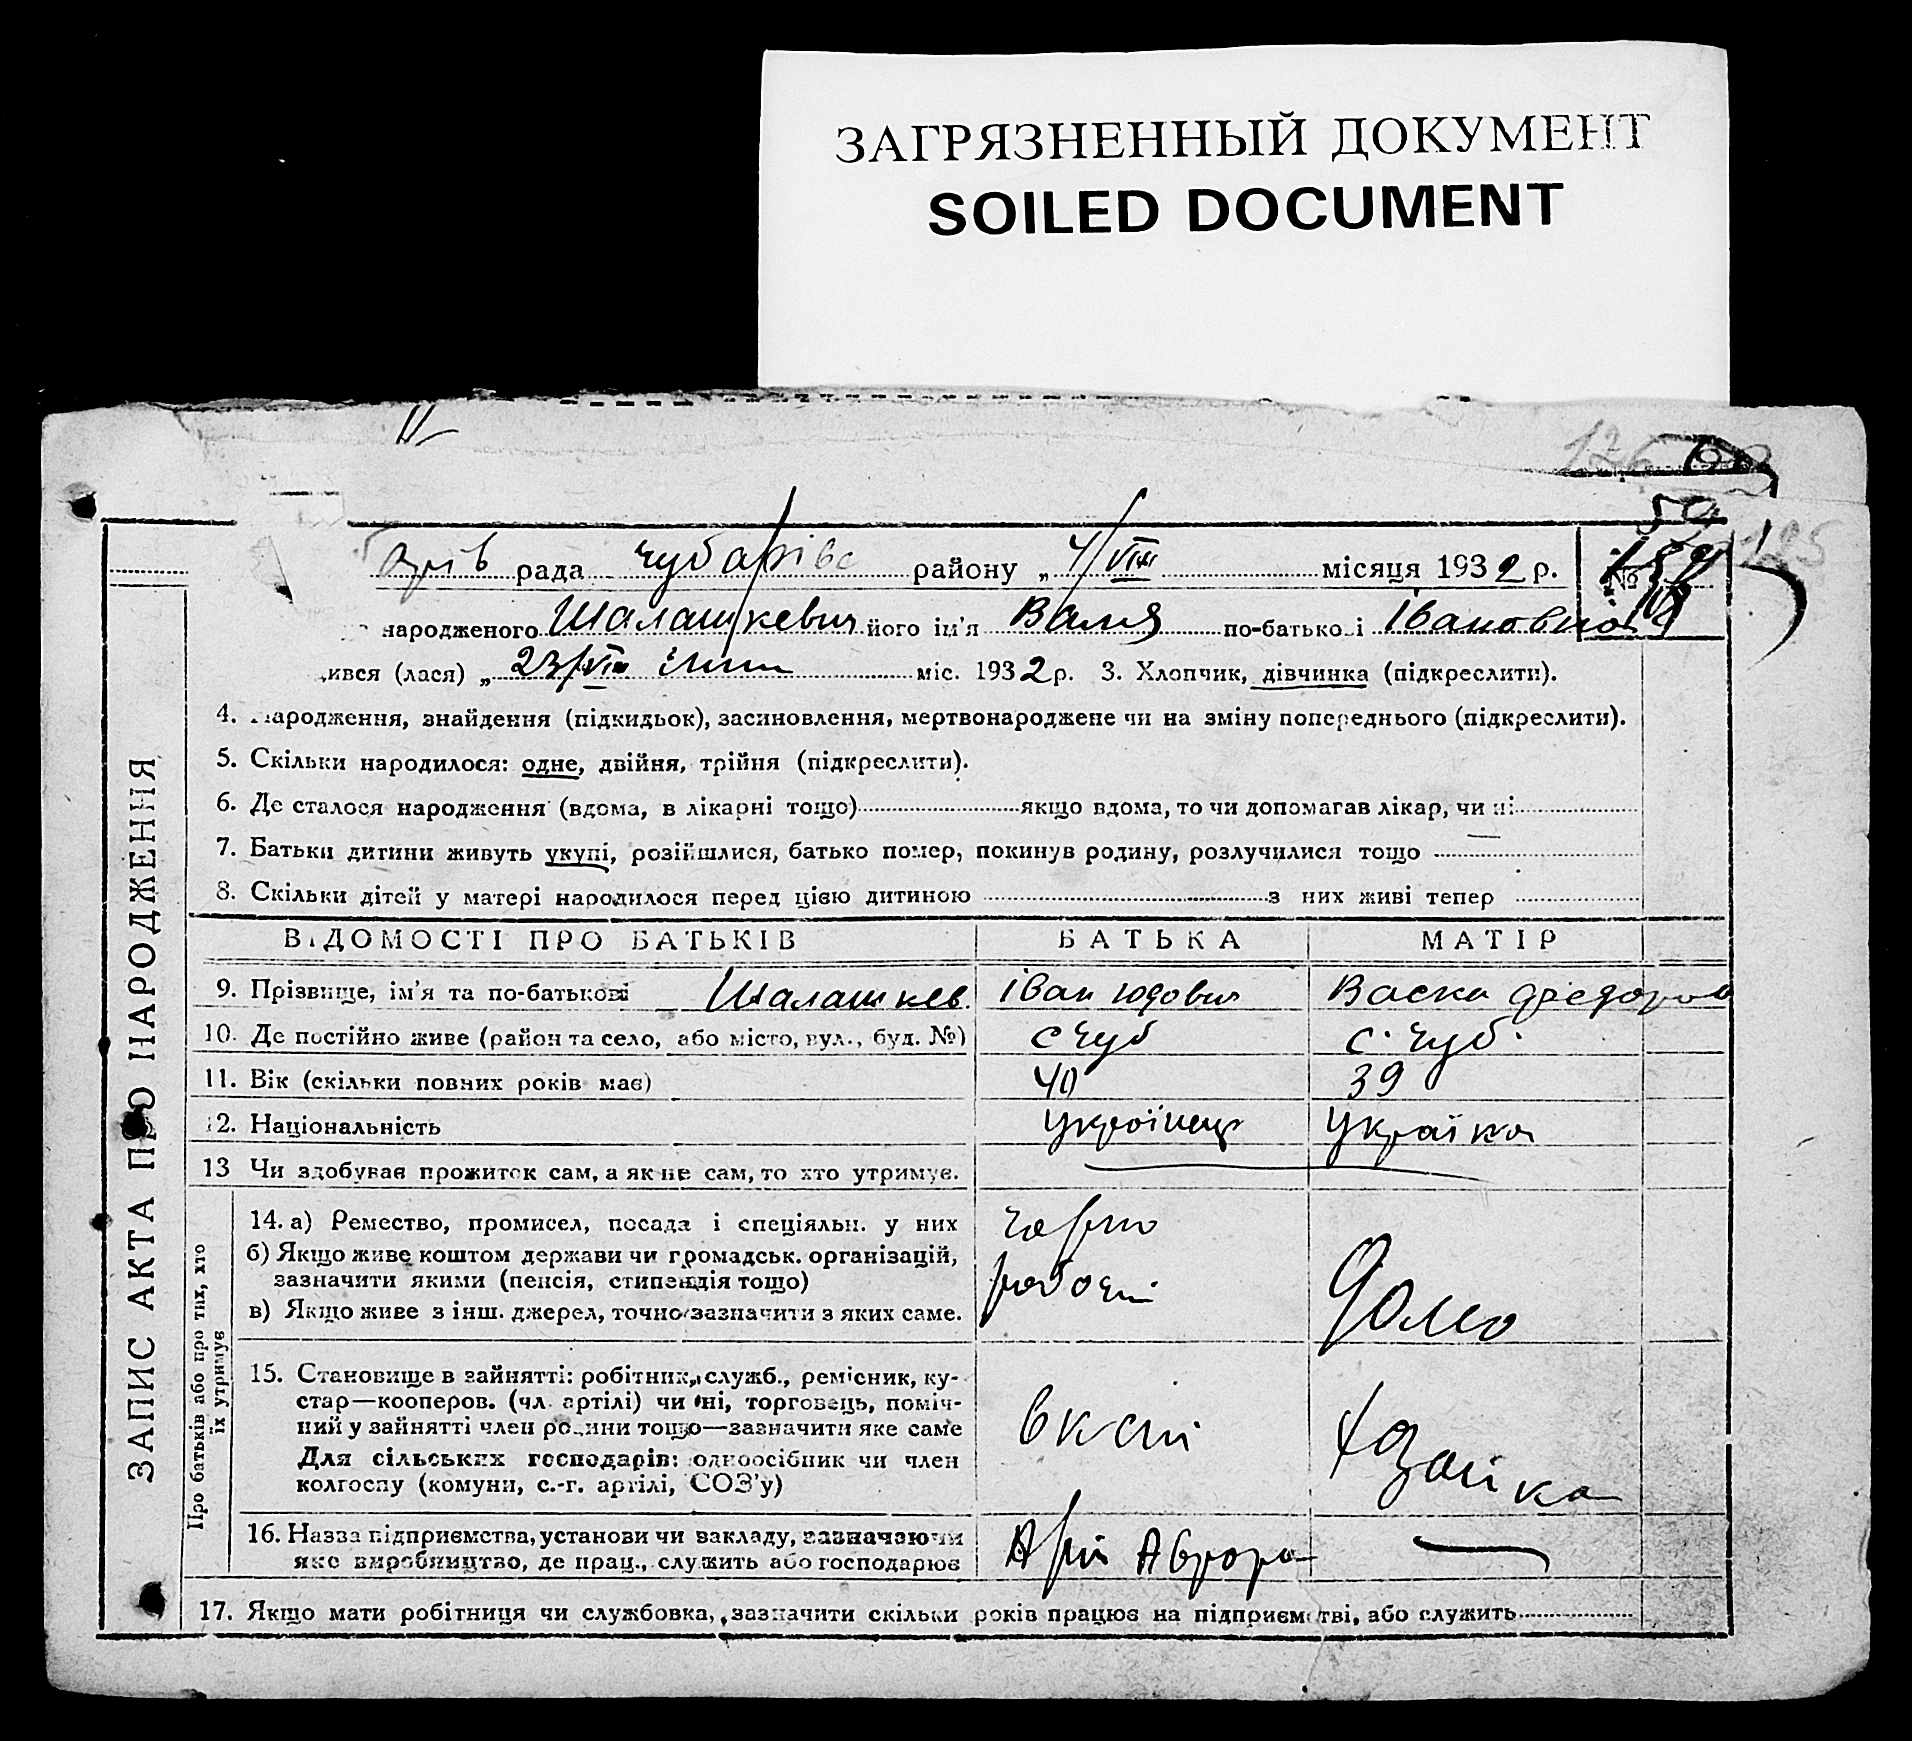 ЗАГРЯЗНЕННЫЙ ДОКУМЕНТ
SOILED DOCUMENT
126
50
рада Чубарівс району „ 4/VIII місяця 1932 р. №
народженого Шалашкевич його ім'я Валя по-батькові Івановна
ився (лася) „ 23/VII міс. 1932 р. 3. Хлопчик, дівчинка (підкреслити).
4. Народження, знайдення (підкидьок), засиновлення, мертвонароджене чи на зміну попереднього (підкреслити).
5. Скільки народилося: одне, двійня, трійня (підкреслити).
6. Де сталося народження (вдома, в лікарні тощо) якщо вдома, то чи допомагав лікар, чи ні
7. Батьки дитини живуть укупі, розійшлися, батько помер, покинув родину, розлучилися тощо
8. Скільки дітей у матері народилося перед цією дитиною з них живі тепер
ЗАПИС АКТА ПРО НАРОДЖЕННЯ
ВІДОМОСТІ ПРО БАТЬКІВ БАТЬКА МАТІР
9. Прізвище, ім'я та по-батькові Шалашкев. Іван Юдович Васка Федоров
10. Де постійно живе (район та село, або місто, вул., буд. №) с Чуб с. Чуб.
11. Вік (скільки повних років має) 40 39
12. Національність Українец Українка
13 Чи здобував прожиток сам, а як не сам, то хто утримує.
Про батьків або про тих, хто
їх утримує
14. а) Ремество, промисел, посада і спеціяльн. у них чорно
б) Якщо живе коштом держави чи громадськ. організацій,
зазначити якими (пенсія, стипендія тощо) робочи Дома
в) Якщо живе з інш. джерел, точно зазначити з яких саме.
15. Становище в зайнятті: робітник, служб., ремісник, ку-
стар—кооперов. (чл. артілі) чи ні, торговець, поміч-
ний у зайнятті член родини тощо—зазначити яке саме
Для сільських господарів: одноосібник чи член
колгоспу (комуни, с.-г. артілі, СОЗ'у)
16. Назва підприємства, установи чи закладу, зазначаючи
яке виробництво, де прац., служить або господарює Аврора
17. Якщо мати робітниця чи службовка, зазначити скільки років працює на підприємстві, або служить